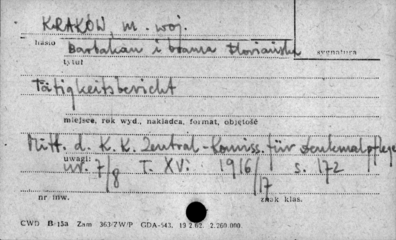 KRAKÓW, m. woj.
hasło Barbakan i brama Floriańska sygnatura
tytuł
Tätigkeitsbericht
miejsce, rok wyd., nakładca, format, objętość
Mitt. d. K. K. Zentral-Komiss. für Denkmalpflege
uwagi
nr. 7/8 T. XV. 1916/17 s. 172
nr inw. znak klas.
CWD B-15a Zam 363/ZW/P GDA-543. 19.2.62. 2.260.000